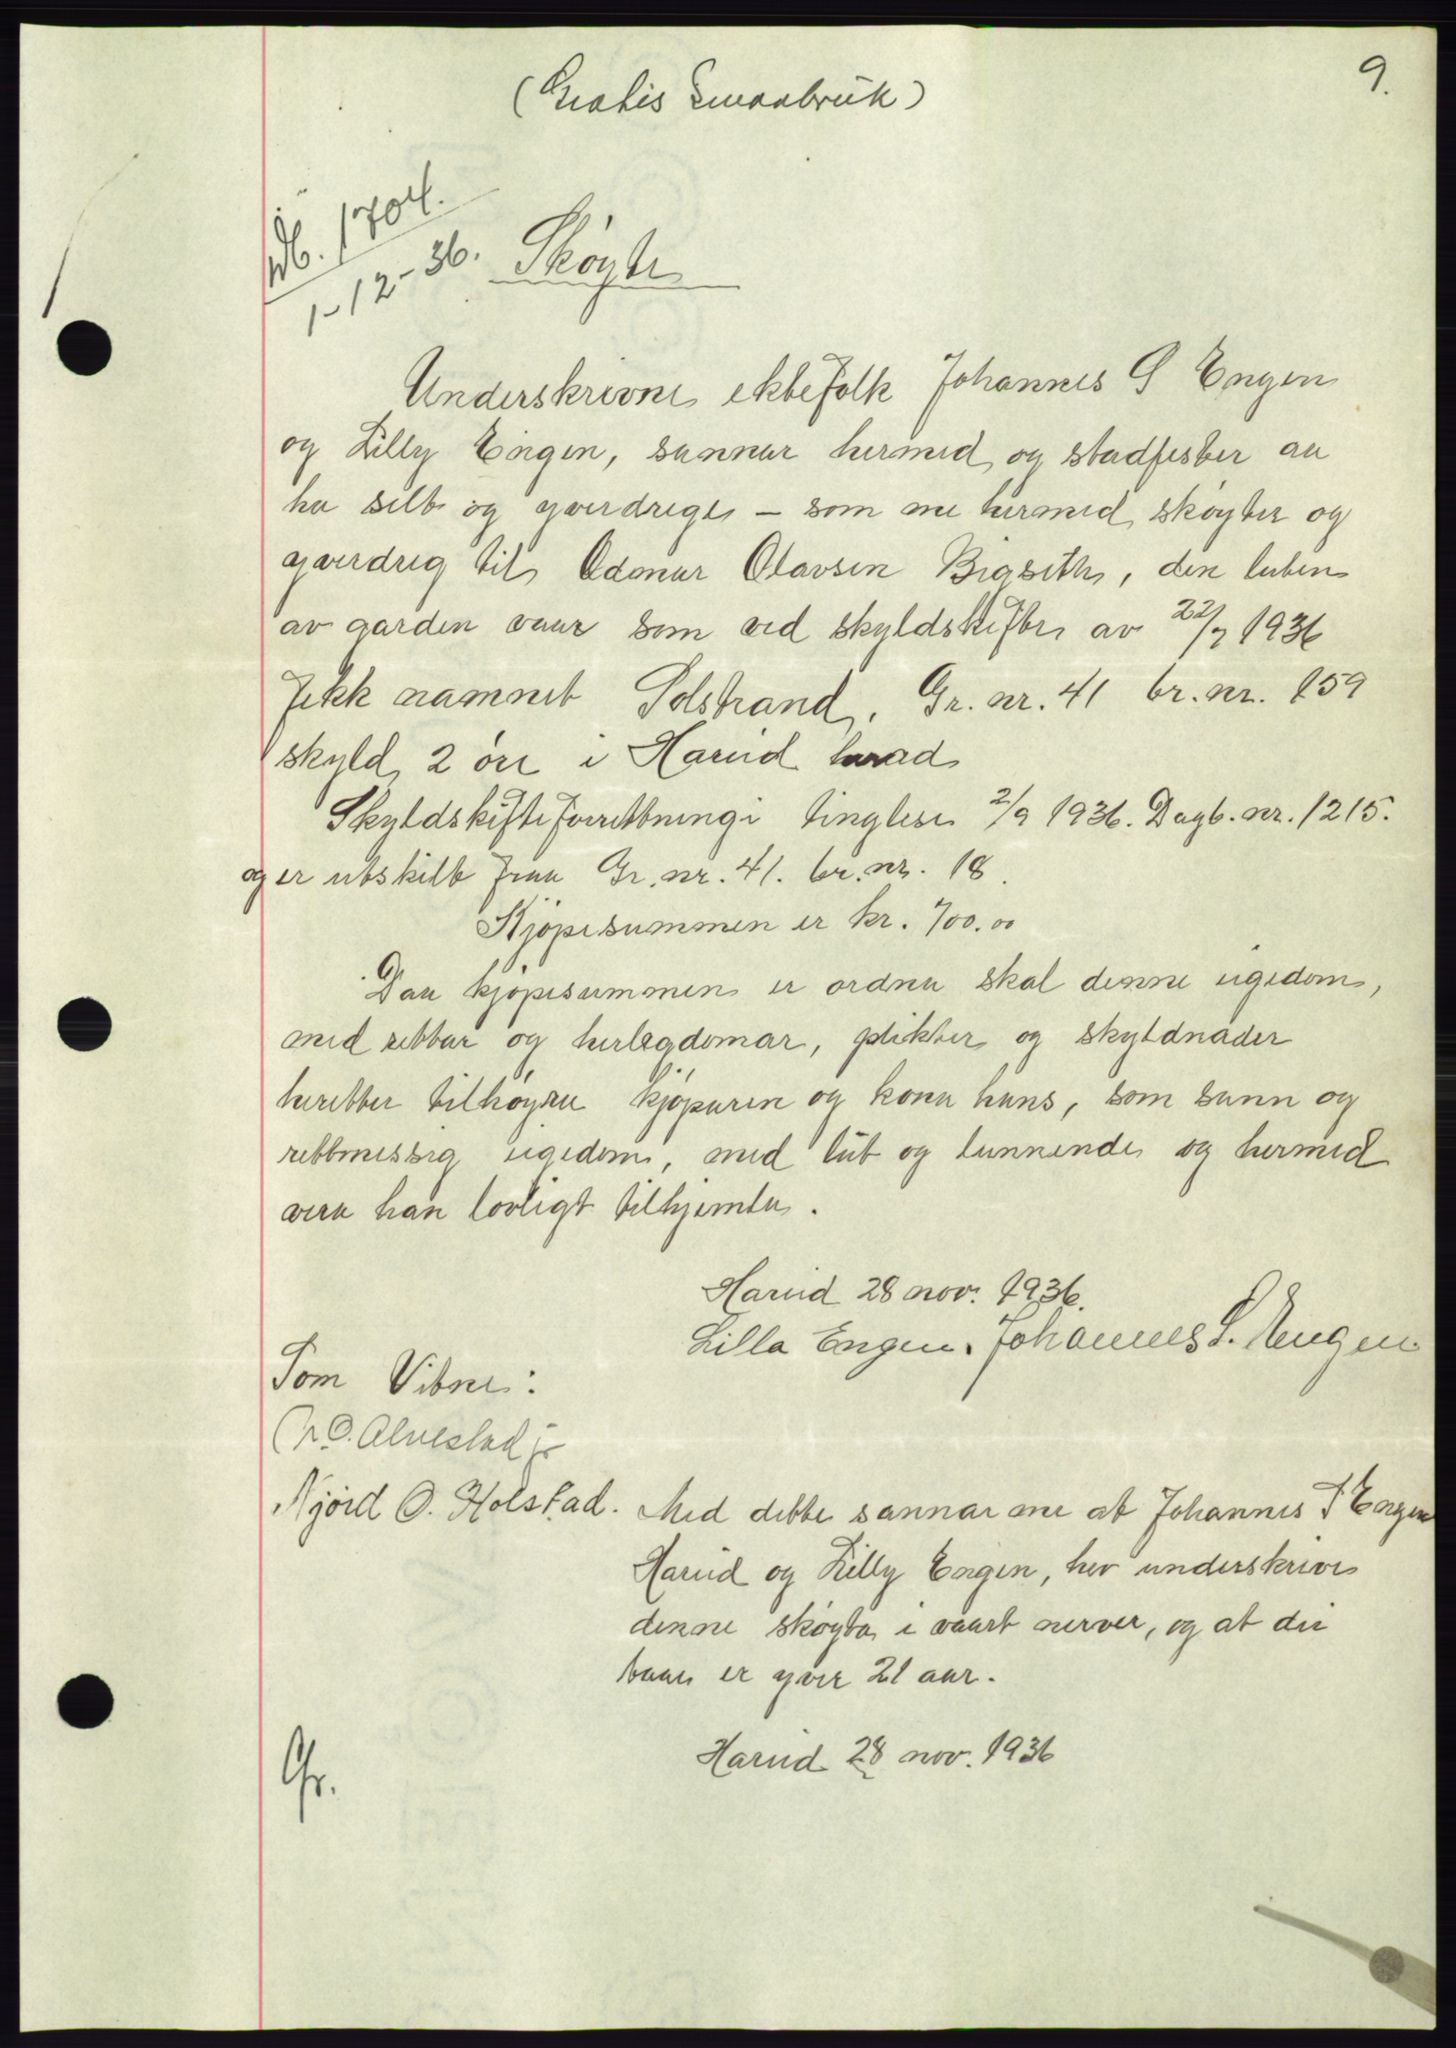 9.
(Gratis Smaabruk)
Db. 1704.
1-12-36. Skøyte
Underskrivne ektefolk Johannes S Engen
og Lilly Engen, sannar hermed og stadfester aa
ha selt og yverdrege – som me hermed skøyter og
yverdrig til Odmar Olavsen Bigseth, den luten
av garden vaar som ved skyldskifte av 22/7 1936
fekk namnet Solstrand, Gr. nr. 41 br. nr. 159
skyld 2 øre i Hareid herad
Skyldskifteforrettningi tinglese 2/9 1936. Dagb. nr. 1215.
og er utskilt fraa Gr. nr. 41. br. nr. 18.
Kjøpesummen er kr. 700.00
Daa kjøpesummen er ordna skal denne eigedom,
med rettar og herlegdomar, plikter og skyldnader
heretter tilhøyra kjøparen og kona hans, som sann og
rettmessig eigedom, med lut og lunnende og hermed
vera han lovligt tilhjemla.
Hareid 28 nov. 1936.
Lilla Engen. Johannes S. Engen
Som Vitne:
O. Alvestad jr
Njørd O. Holstad. Med dette sannar me at Johannes S Engen
Hareid og Lilly Engen, hev underskrive
denne skøyta i vaart nerver, og at dei
baae er yver 21 aar.
Hareid 28 nov. 1936
Gr.